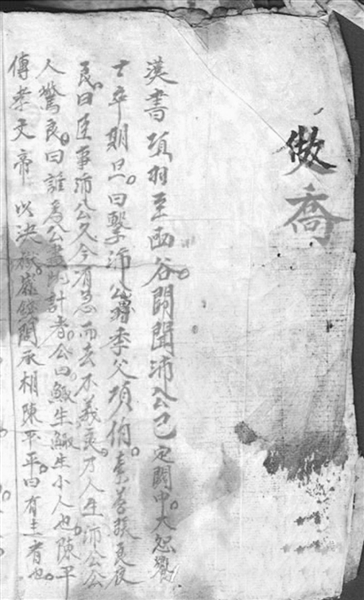 做喬
漢書項羽至函谷關聞沛公已定關中大怒饗
士卒期旦日擊沛公羽季父項伯素善張良良
良曰臣事沛公久今有急而去不義乃入告沛公公
人驚良曰誰為公計者公曰鯫生鯫生小人也陳平
傳孝文帝以決獄錢問丞相陳平平曰有主者也